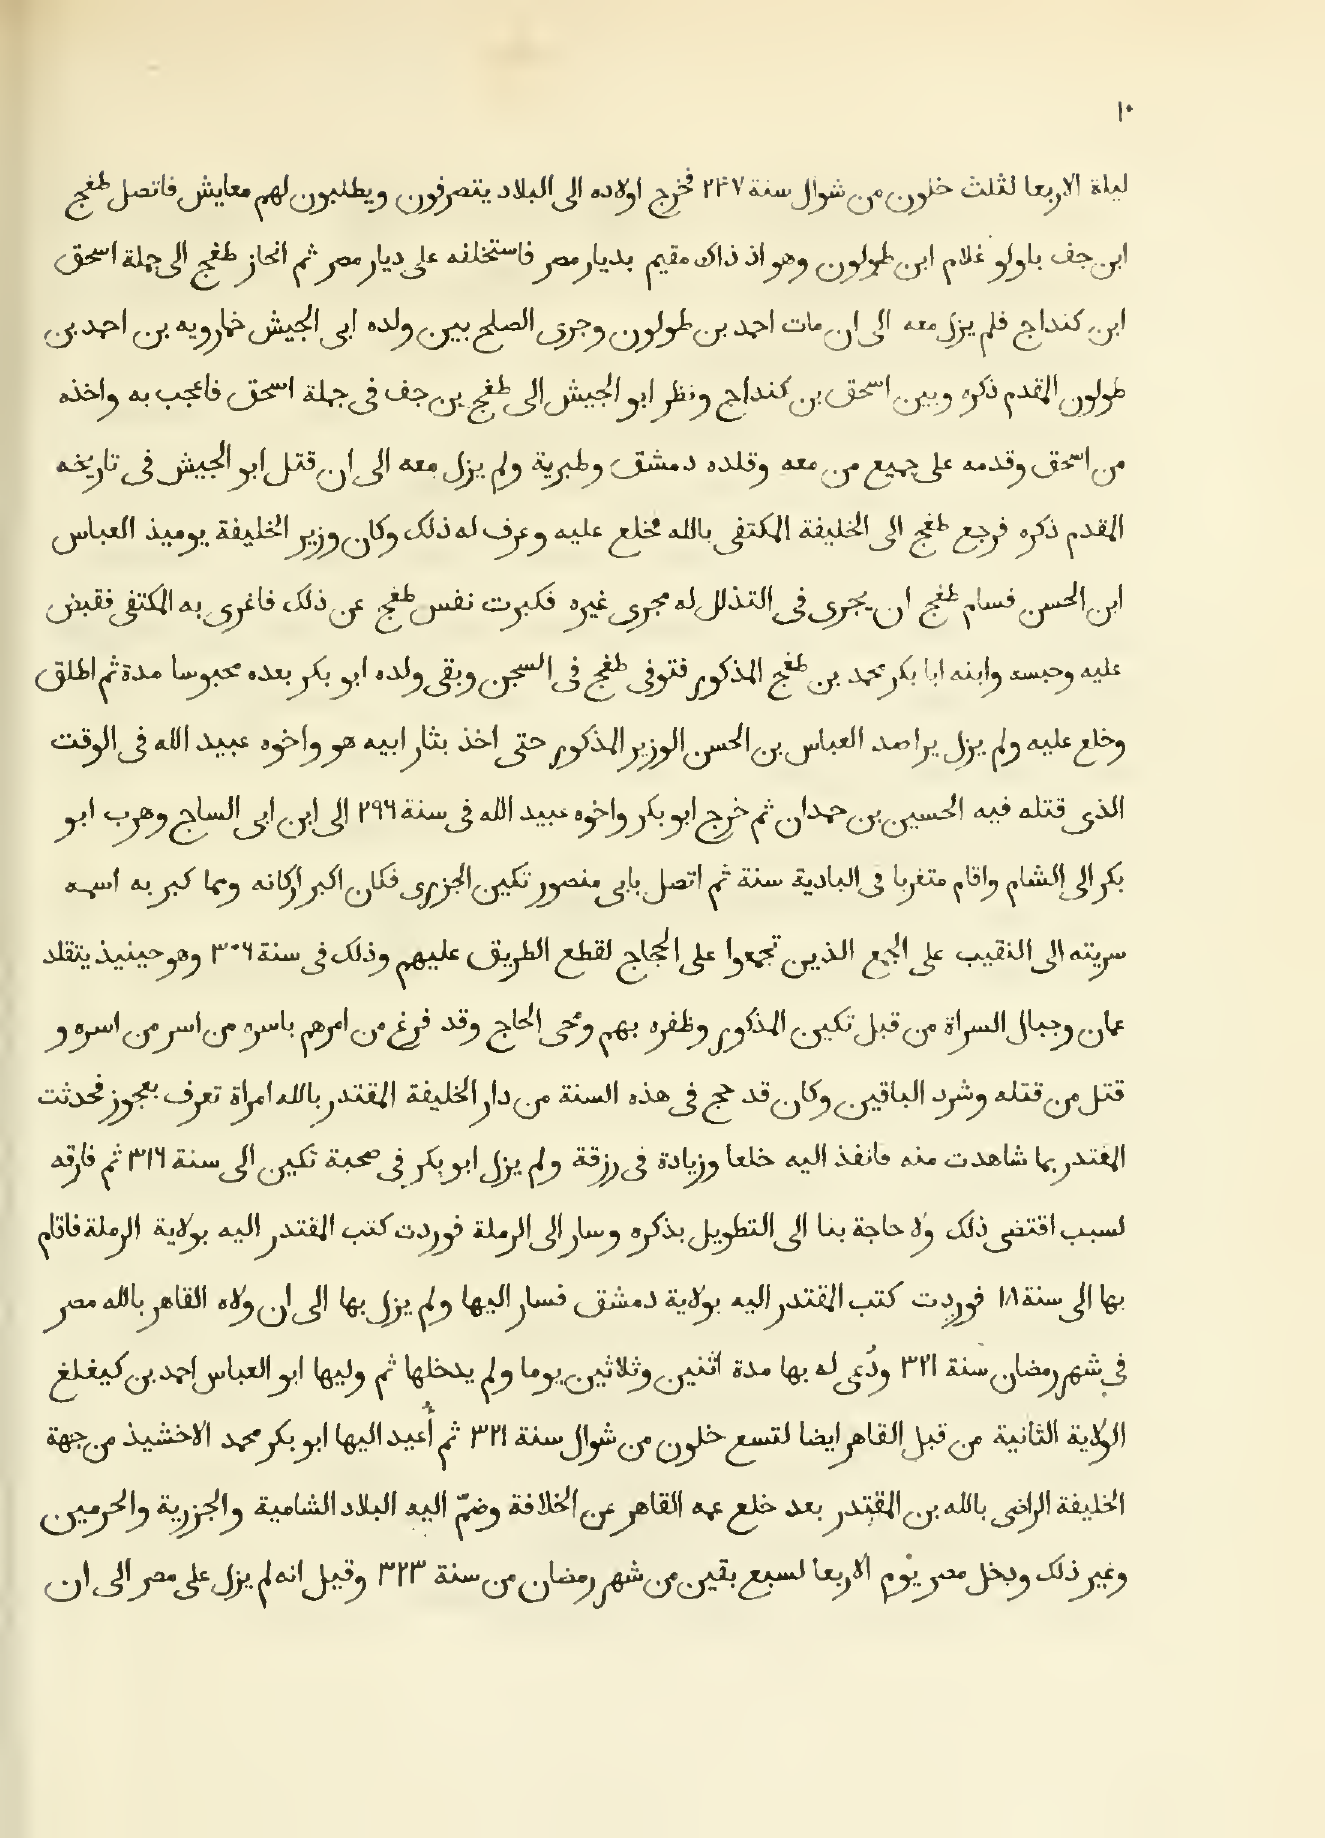 ١٠
ليلة الاربعا لثلث خلون من شوال سنة ٢٤٧ فخرج اولاده الى البلاد يتصرفون ويطلبون لهم معايش فاتصل طغج
ابن جف باولو غلام ابن طولون وهو اذ ذاك مقيم بديار مصر فاستخلفه على ديار مصر ثم انحاز طغج الى جملة اسحق
ابن كنداج فلم يزل معه الى ان مات احمد بن طولون وجرى الصلح بين ولده ابى الجيش خمارويه بن احمد بن
طولون المقدم ذكره وبين اسحق بن كنداج ونظر ابو الجيش الى طغج بن جف فى جملة اسحق فاعجب به واخذه
من اسحق وقدمه على جميع من معه وقلده دمشق وطبرية ولم يزل معه الى ان قتل ابو الجيش فى تاريخه
المقدم ذكره فرجع طغج الى الخليفة المكتفى بالله فخلع عليه وعرف له ذلك وكان وزير الخليفة يوميذ العباس
ابن الحسن فسام طغج ان يجرى فى التذلل له مجرى غيره فكبرت نفس طغج عن ذلك فاغرى به المكتفى فقبض
عليه وحبسه وابنه ابا بكر محمد بن طغج المذكور فتوفى طغج فى السجن وبقى ولده ابو بكر بعده محبوسا مدة ثم اطلق
وخلع عليه ولم يزل يراصد العباس بن الحسن الوزير المذكور حتى اخذ بثار ابيه هو واخوه عبيد الله فى الوقت
الذى قتله فيه الحسين بن حمدان ثم خرج ابو بكر واخوه عبيد الله فى سنة ٢٩٦ الى ابن ابى الساج وهرب ابو
بكر الى الشام واقام متغربا فى البادية سنة ثم اتصل بابى منصور تكين الجزرى فكان اكبر اركانه ومما كبر به اسمه
سريته الى النقيب على الجمع الذين تجمعوا على الحجاج لقطع الطريق عليهم وذلك فى سنة ٣٠٦ وهو حينيذ يتقلد
عمان وجبال السراة من قبل تكين المذكور وظفره بهم ونحى الحاج وقد فرغ من امرهم باسره من اسر من اسره و
قتل من قتله وشرد الباقين وكان قد حج فى هذه السنة من دار الخليفة المقتدر بالله امراة تعرف بعجوز فحدثت
المقتدر بما شاهدت منه فانفذ اليه خلعا وزيادة فى رزقة ولم يزل ابو بكر فى صحبة تكين الى سنة ٣١٦ ثم فارقه
لسبب اقتضى ذلك ولا حاجة بنا الى التطويل بذكره وسار الى الرملة فوردت كتب المقتدر اليه بولاية الرملة فاقام
بها الى سنة ١٨ فوردت كتب المقتدر اليه بولاية دمشق فسار اليها ولم يزل بها الى ان ولاه القاهر بالله مصر
فى شهر رمضان سنة ٣٢١ ودُعى له بها مدة اثنين وثلاثين يوما ولم يدخلها ثم وليها ابو العباس احمد بن كيغلغ
الولاية الثانية من قبل القاهر ايضا لتسع خلون من شوال سنة ٣٢١ ثم أُعيد اليها ابو بكر محمد الاخشيذ من جهة
الخليفة الراضى بالله بن المقتدر بعد خلع عمه القاهر عن الخلافة وضمّ اليه البلاد الشامية والجزرية والحرمين
وغير ذلك ودخل مصر يوم الاربعا لسبع بقين من شهر رمضان من سنة ٣٢٣ وقيل انه لم يزل على مصر الى ان